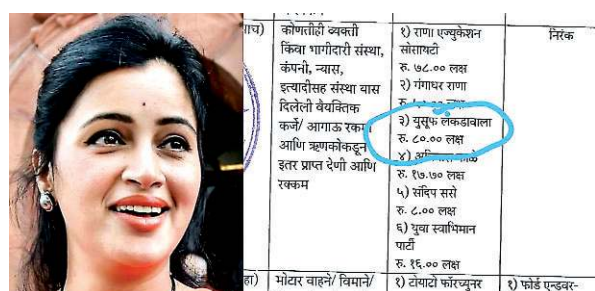 ाच)
कोणतीही व्यक्ती
किंवा भागीदारी संस्था,
कंपनी, न्यास,
इत्यादीसह संस्था यास
दिलेली वैयक्तिक
कर्जे/ आगाऊ रकमा
आणि ऋणकोंकडून
इतर प्राप्त देणी आणि
रक्कम
१) राणा एज्युकेशन
सोसायटी
रु. ७८.०० लक्ष
२) गंगाधर राणा
३) युसूफ लकडावाला
रु. ८०.०० लक्ष
४)
रु. १७.७० लक्ष
५) संदिप ससे
रु. ८.०० लक्ष
६) युवा स्वाभिमान
पार्टी
रु. १६.०० लक्ष
निरंक
हा)
मोटार वाहने/ विमाने/
१) टोयाटो फॉरच्युनर
१) फोर्ड एन्डवर-